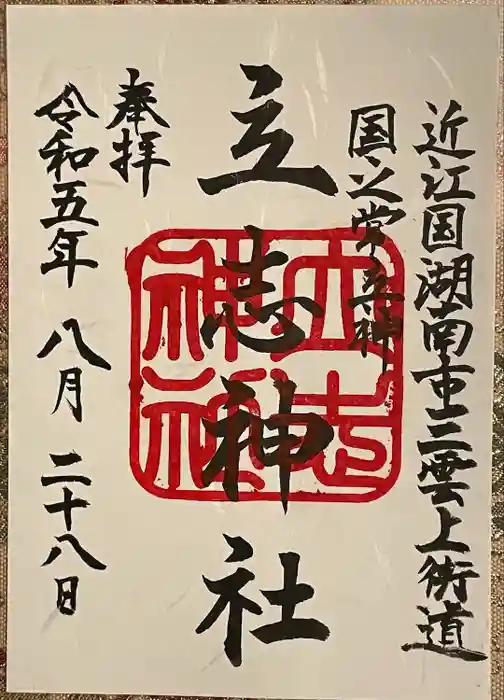 近江国湖南市三雲上街道
国之常立神
立志神社
奉拝
令和五年 八月 二十八日
立志
神社